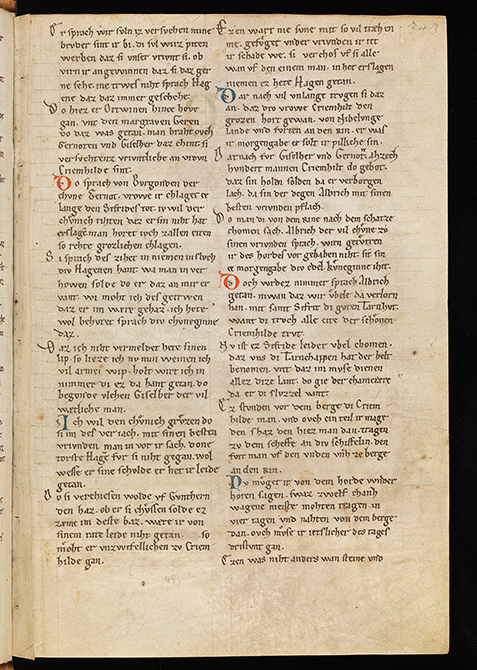 Er sprach wir svln iz versvchen mine
brvder sint ir bi. di svl wirz piten
werben daz si vnser vrivnt si. ob
wirn ir an gewinnen daz si daz ger
ne sehe. ine trwes niht sprach Hag
ene daz daz immer geschehe.
Do hiez er Ortwinen hin ce hove
gan. vnt den margraven Geren
do daz was getan. man braht ovch
Gernoten vnd Giselher daz chint. si
versvchtenz vrivntliche an vrovn
Criemhilde sint.
Do sprach von Bvrgonden der
chvne Gernot. vrowe ir chlaget ce
lange den Sifrides tot. iv wil der
chvnich rihten daz er sin niht hat
erslagen. man horet ivch zallen citen
so rehte grozlichen chlagen.
Si sprach des ziher in niemen in slvch
div Hagenen hant. wa man in ver
howen solde do er daz an mir er
vant. wi moht ich des getrwen
daz er im wære gehaz. ich hete
wol behvtet sprach div chvneginne
daz.
Daz ich niht vermeldet hete sinen
lip. so lieze ich nv min weinen ich
vil armez wip. holt wirt ich in
nimmer di ez da hant getan. do
begonde vlehen Giselher der vil
wætliche man.
Ich wil den chvnich grvzen do
si im des veriach. mit sinen besten
vrivnden man in vor ir sach. done
torste Hagen fvr si niht gegan. wol
wesse er sine schvlde er het ir leide
getan.
Do si verchiesen wolde vf Gvnthern
den haz. ob er si chvssen solde ez
zæme im deste baz. wære ir von
sinem rate leide niht getan. so
moht er vrævellichen zv Criem
hilde gan.
Ezen wart nie svne mit so vil træhen
me. gefvget vnder vrivnden ir tet
ir schade we. si verchos vf si alle
wan vf den einen man. in het erslagen
niemen ez hete Hagen getan.
Dar nach vil vnlange trvgen si daz
an. daz div vrowe Criemhilt den
grozen hort gewan. von Nibelvnge
lande vnd fvrten an den rin. er was
ir morgengabe er solt ir pilliche sin.
Dar nach fvr Giselher vnd Gernot. ahzech
hvndert mannen Criemhilt do gebot.
daz sin holn solden da er verborgen
lach. da sin der degen Albrich mit sinen
besten vrivnden pflach.
Do man di von dem rine nach dem schatze
chomen sach. Albrich der vil chvne zv
sinen vrivnden sprach. wirn getvrren
ir des hordes vor gehaben niht. sit sin
ce morgengabe div edel kvneginne iht.
Doch wrdez nimmer sprach Albrich
getan. niwan daz wir vbele da verlorn
han. mit samt Sifrit di gvten Tarnhvt.
wand di trvch alle cite der schonen
Criemhilde trvt.
Nv ist ez Sifride leider vbel chomen.
daz vns di Tarnchappen hat der helt
benomen. vnt daz im mvse dienen
allez dizze lant. do gie der chameræe
da er di slvzzel vant.
Ez stvnden vor dem berge di Criem
hilde man. vnd ovch ein teil ir mage
den schaz den hiez man dan. tragen
zv dem scheffe an div schiffelin. den
fvrt man vf den vnden vnz ce berge
an den rin.
Nv mvget ir von dem horde wnder
horen sagen. swaz zwelf chanz
wægene meiste mohten tragen. in
vier tagen vnd nahten von dem berge
dan. ovch mvse ir ietslicher des tages
dristvnt gan.
Ezen was niht anders wan steine vnd